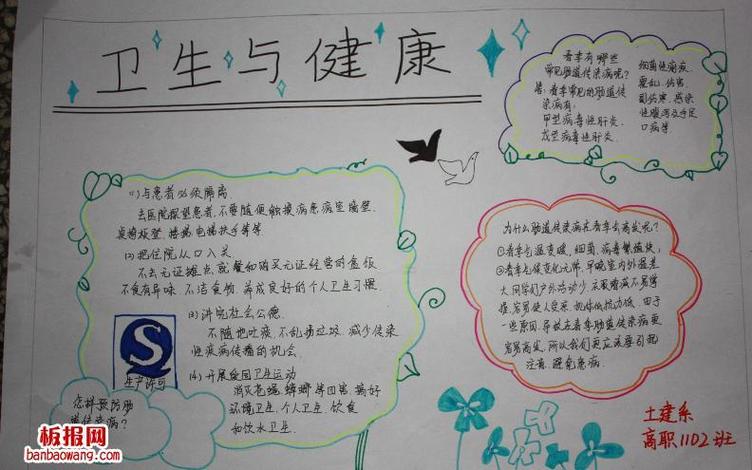 卫生与健康
春季有哪些
常见肠道传染病呢?
答:春季常见的肠道传
染病有:
甲型病毒性肝炎.
戊型病毒性肝炎.
细菌性痢疾.
霍乱.伤寒.
副伤寒.感染
性腹泻及手足
口病等
(1)与患者必须隔离
去医院探望患者,不要随便触摸病患病室墙壁.
桌椅板凳.楼梯电梯扶手等等.
(2)把住院从口入关.
不去无证摊点就餐和购买无证经营的盒饭
不食有异味.不洁食物.养成良好的个人卫生习惯.
(3)讲究社会公德.
不随地吐痰,不乱扔垃圾.减少传染
性疾病传播的机会.
(4)开展爱国卫生运动
消灭苍蝇.蟑螂等四害.搞好
环境卫生.个人卫生.饮食
和饮水卫生.
S
生产许可
怎样预防肠
道传染病?
为什么肠道传染病在春季会高发呢?
①春季气温变暖,细菌.病毒繁殖快;
②春季气候变化无常,早晚室内外温差
大,同学们户外活动少,
容易使人受寒.机体抵抗力低.由于
一些原因.导致在春季肠道传染病更
容易高发,所以我们更应该要引起
注意.避免患病.
土建系
高职1102班
板报网
banbaowang.com